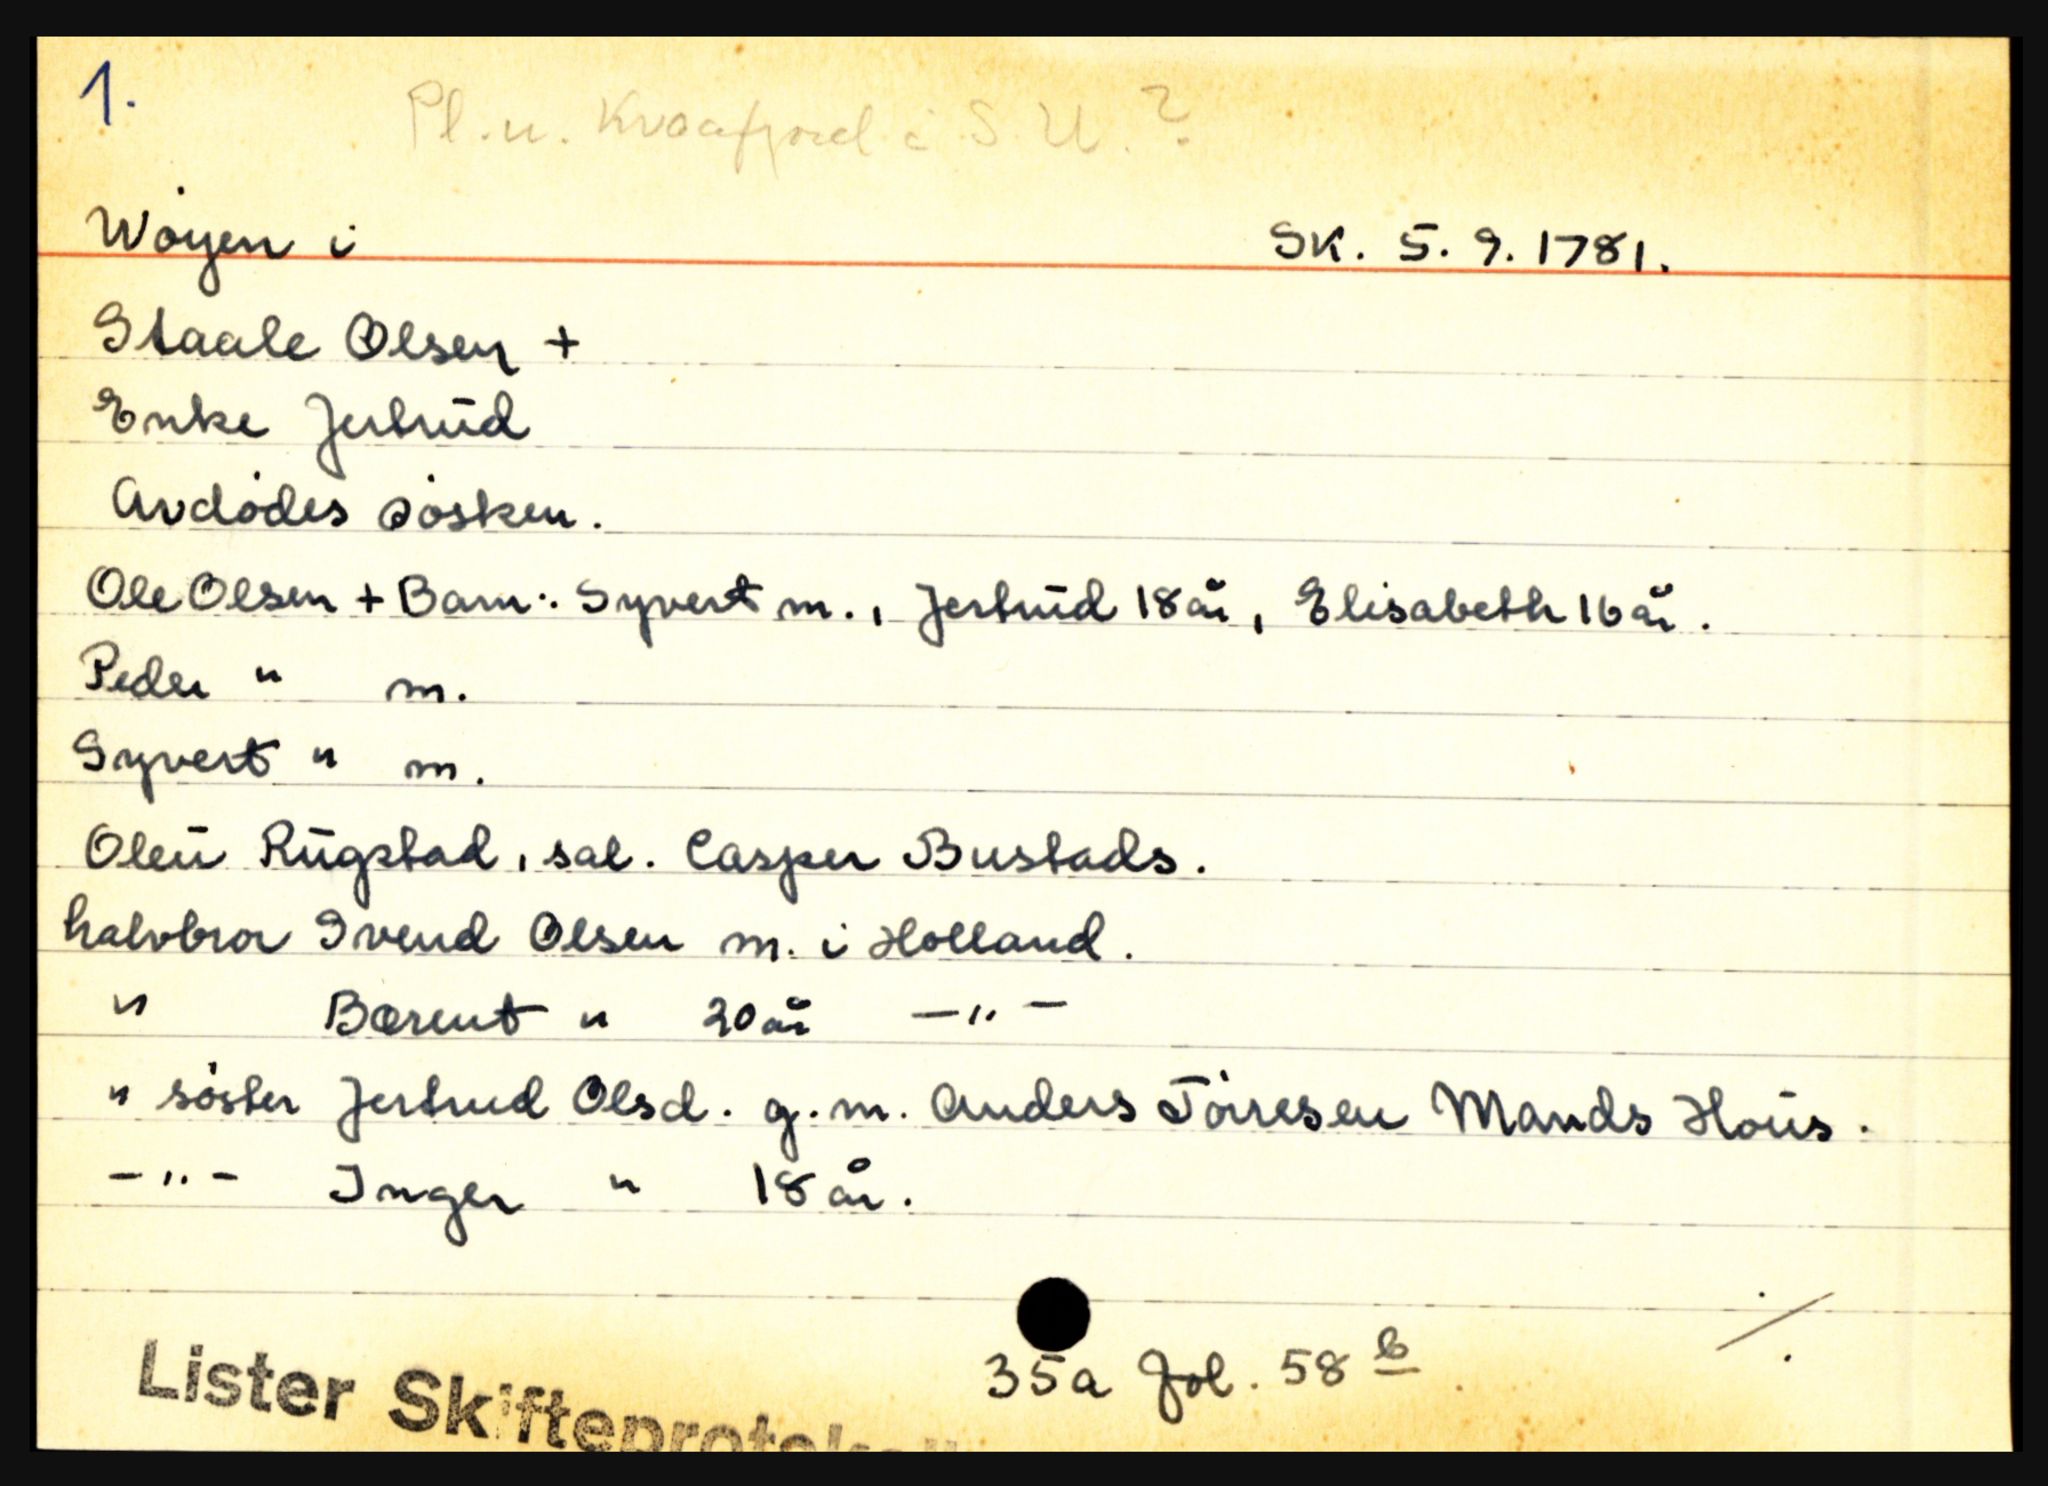 1.
Pl. u. Kvaafjord i S. U. ?
Wöyen i SK. 5. 9. 1781.
Staale Olsen +
Enke Jertrud
Avdödes søsken.
Ole Olsen + Barn: Syvert m., Jertrud 18 år, Elisabeth 16 år.
Peder " m.
Syvert " m.
Oleu Rugstad, sal. Casper Bustads.
halvbror Svend Olsen m. i Holland.
" Berent " 20 år — " —
" søster Jertrud Olsd. g. m. Anders Törresen Mands Hous.
— " — Inger " 18 år.
35a Fol. 58 b
Lister Skifteprotokoll